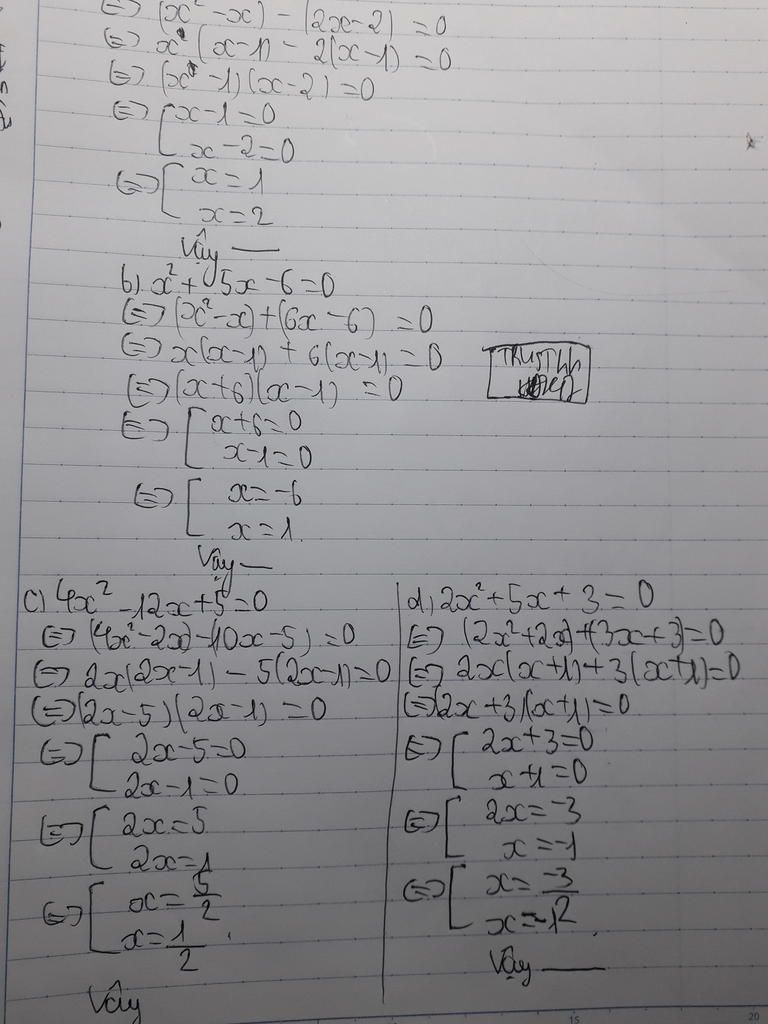 ⇔ (x² - x) - (2x - 2) = 0
⇔ x (x - 1) - 2(x - 1) = 0
⇔ (x - 1)(x - 2) = 0
⇔ [ x - 1 = 0
x - 2 = 0
⇔ [ x = 1
x = 2
Vậy —
b) x² + 5x - 6 = 0
⇔ (x² - x) + (6x - 6) = 0
⇔ x(x - 1) + 6(x - 1) = 0
⇔ (x + 6)(x - 1) = 0
⇔ [ x + 6 = 0
x - 1 = 0
⇔ [ x = -6
x = 1
Vậy —
c) 4x² - 12x + 5 = 0
⇔ (4x² - 2x) - (10x - 5) = 0
⇔ 2x(2x - 1) - 5(2x - 1) = 0
⇔ (2x - 5)(2x - 1) = 0
⇔ [ 2x - 5 = 0
2x - 1 = 0
⇔ [ 2x = 5
2x = 1
⇔ [ x = 5/2
x = 1/2
Vậy
d) 2x² + 5x + 3 = 0
⇔ (2x² + 2x) + (3x + 3) = 0
⇔ 2x(x + 1) + 3(x + 1) = 0
⇔ (2x + 3)(x + 1) = 0
⇔ [ 2x + 3 = 0
x + 1 = 0
⇔ [ 2x = -3
x = -1
⇔ [ x = -3/2
x = -1
Vậy —
15
20